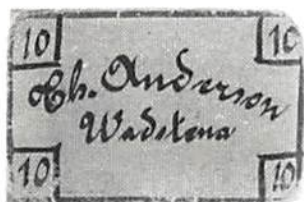 10 10
Ch. Anderson
Wadstena
10 10